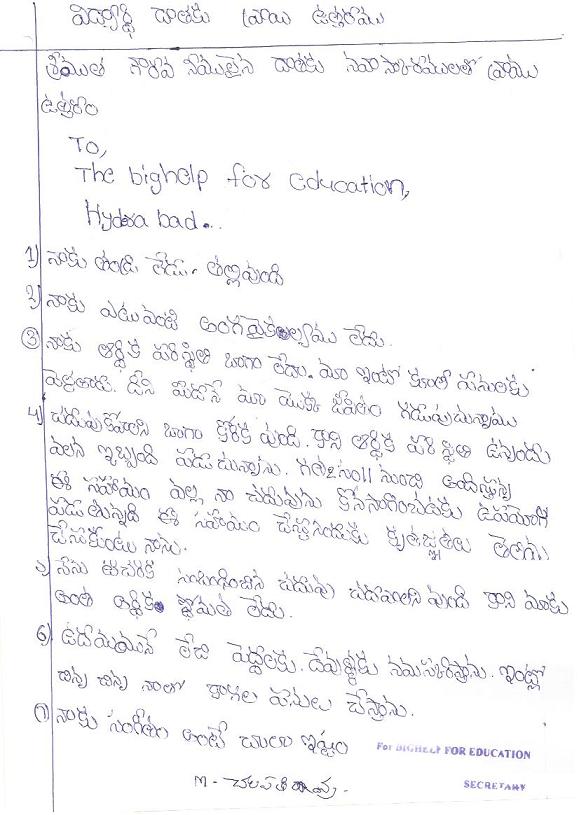 విద్యార్థి దాతకు వ్రాయు ఉత్తరము
శ్రీయుత గౌరవ నీయులైన దాతకు నమాస్కారములతో వ్రాయు
ఉత్తరం
To,
The bighelp for education,
Hydra bad...
1) నాకు తండ్రి లేడు. తల్లివుంది
2) నాకు ఎటువంటి అంగవైకల్యము లేదు.
3) నాకు ఆర్థిక పరిస్థితి బాగా లేదు. మా ఇంటో కూలి పనులకు
వెళతారు. దీని మీదనే మా యొక్క జీవితం గడుపుచున్నాము
4) చదువుకోవాలని బాగా కోరిక వుంది. కాని ఆర్థిక పరి స్థితి ఉన్నందు
వలన ఇబ్బంది పడుచున్నాను. గత 2 సంII నుంచి అందిస్తున్న
ఈ సహాయం వల్ల నా చదువును కొనసాగించుటకు ఉపయోగ
పడుతున్నది ఈ సహాయం చేస్తూనందుకు కృతజ్ఞతలు తెలియ
చేసుకుంటు నాను.
5) నేను టీచరికి సంబంధించిన చదువు చదవాలని వుంది కాని మాకు
అంత ఆర్థిక స్థోమత లేదు.
6) ఉదయమునే లేచి పెద్దలకు. దేవుళ్ళకు నమస్కరిస్తాను. ఇంట్లో
చిన్న చిన్న నాలో కాగల పనులు చేస్తాను.
7) నాకు సంగీతం అంటే చాలా ఇష్టం
For BIGHELP FOR EDUCATION
M - చలపతిరావు.
SECRETARY